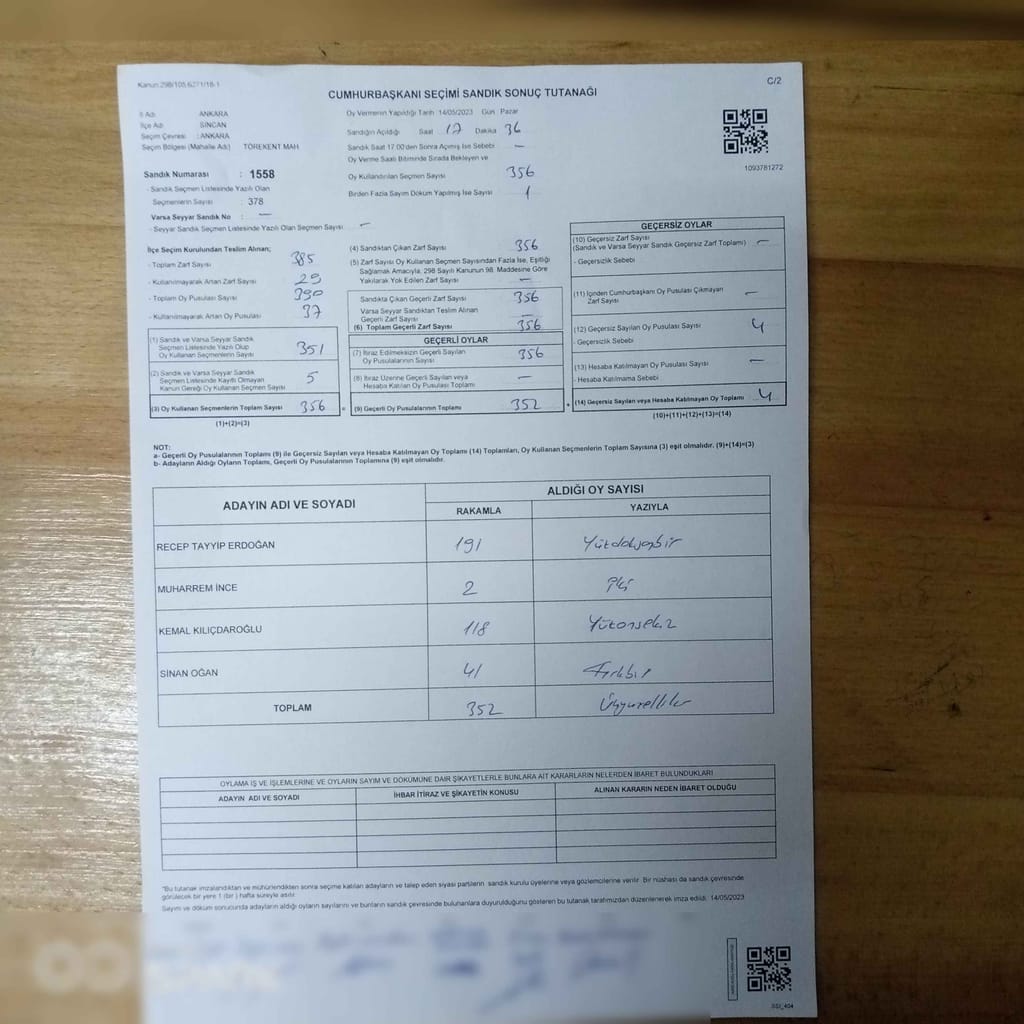 Kanun:298/105,6271/18-1
C/2
CUMHURBAŞKANI SEÇİMİ SANDIK SONUÇ TUTANAĞI
İl Adı ANKARA
İlçe Adı SİNCAN
Seçim Çevresi : ANKARA
Seçim Bölgesi (Mahalle Adı) TÖREKENT MAH
Sandık Numarası : 1558
- Sandık Seçmen Listesinde Yazılı Olan
Seçmenlerin Sayısı : 378
Varsa Seyyar Sandık No : —
- Seyyar Sandık Seçmen Listesinde Yazılı Olan Seçmen Sayısı : —
Oy Vermenin Yapıldığı Tarih :14/05/2023 Gün : Pazar
Sandığın Açıldığı Saat 17 Dakika 36
Sandık Saat 17.00'den Sonra Açımış İse Sebebi —
Oy Verme Saati Bitiminde Sırada Bekleyen ve
Oy Kullandırılan Seçmen Sayısı 356
Birden Fazla Sayım Döküm Yapılmış İse Sayısı 1
1093781272
İlçe Seçim Kurulundan Teslim Alınan;
- Toplam Zarf Sayısı 385
- Kullanılmayarak Artan Zarf Sayısı 29
- Toplam Oy Pusulası Sayısı 390
- Kullanılmayarak Artan Oy Pusulası 37
(1) Sandık ve Varsa Seyyar Sandık
Seçmen Listesinde Yazılı Olup
Oy Kullanan Seçmenlerin Sayısı 351
(2) Sandık ve Varsa Seyyar Sandık
Seçmen Listesinde Kayıtlı Olmayan
Kanun Gereği Oy Kullanan Seçmen Sayısı 5
(3) Oy Kullanan Seçmenlerin Toplam Sayısı 356
(1)+(2)=(3)
(4) Sandıktan Çıkan Zarf Sayısı 356
(5) Zarf Sayısı Oy Kullanan Seçmen Sayısından Fazla İse, Eşitliği
Sağlamak Amacıyla, 298 Sayılı Kanunun 98. Maddesine Göre
Yakılarak Yok Edilen Zarf Sayısı —
Sandıkta Çıkan Geçerli Zarf Sayısı 356
Varsa Seyyar Sandıktan Teslim Alınan
Geçerli Zarf Sayısı —
(6) Toplam Geçerli Zarf Sayısı 356
GEÇERLİ OYLAR
(7) İtiraz Edilmeksizin Geçerli Sayılan
Oy Pusulalarının Sayısı 356
(8) İtiraz Üzerine Geçerli Sayılan veya
Hesaba Katılan Oy Pusulası Toplamı —
= (9) Geçerli Oy Pusulalarının Toplamı 352
GEÇERSİZ OYLAR
(10) Geçersiz Zarf Sayısı
(Sandık ve Varsa Seyyar Sandık Geçersiz Zarf Toplamı) —
- Geçersizlik Sebebi
(11) İçinden Cumhurbaşkanı Oy Pusulası Çıkmayan
Zarf Sayısı —
(12) Geçersiz Sayılan Oy Pusulası Sayısı 4
- Geçersizlik Sebebi
(13) Hesaba Katılmayan Oy Pusulası Sayısı —
- Hesaba Katılmama Sebebi
+ (14) Geçersiz Sayılan veya Hesaba Katılmayan Oy Toplamı 4
(10)+(11)+(12)+(13)=(14)
NOT:
a- Geçerli Oy Pusulalarının Toplamı (9) ile Geçersiz Sayılan veya Hesaba Katılmayan Oy Toplamı (14) Toplamları, Oy Kullanan Seçmenlerin Toplam Sayısına (3) eşit olmalıdır. (9)+(14)=(3)
b- Adayların Aldığı Oyların Toplamı, Geçerli Oy Pusulalarının Toplamına (9) eşit olmalıdır.
ADAYIN ADI VE SOYADI ALDIĞI OY SAYISI
RAKAMLA YAZIYLA
RECEP TAYYİP ERDOĞAN 191 Yüzdoksanbir
MUHARREM İNCE 2 İki
KEMAL KILIÇDAROĞLU 118 Yüzonsekiz
SİNAN OĞAN 41 Kırkbir
TOPLAM 352 Üçyüzelliiki
OYLAMA İŞ VE İŞLEMLERİNE VE OYLARIN SAYIM VE DÖKÜMÜNE DAİR ŞİKAYETLERLE BUNLARA AİT KARARLARIN NELERDEN İBARET BULUNDUKLARI
ADAYIN ADI VE SOYADI İHBAR İTİRAZ VE ŞİKAYETİN KONUSU ALINAN KARARIN NEDEN İBARET OLDUĞU
"Bu tutanak imzalandıktan ve mühürlendikten sonra seçime katılan adayların ve talep eden siyasi partilerin sandık kurulu üyelerine veya gözlemcilerine verilir. Bir nüshası da sandık çevresinde
görülecek bir yere 1 (bir) hafta süreyle asılır.
Sayım ve döküm sonucunda adayların aldığı oyların sayılarını ve bunların sandık çevresinde bulunanlara duyurulduğunu gösteren bu tutanak tarafımızdan düzenlenerek imza edildi. 14/05/2023